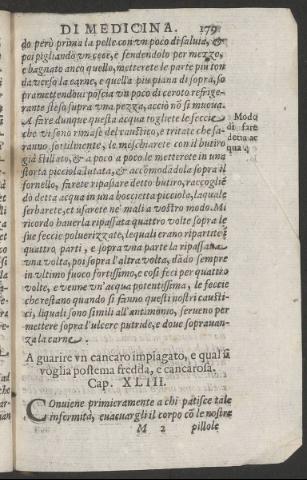 DI MEDICINA. 179
do però prima la pelle con vn poco di saliua, &
poi pigliando vn cece, e fendendolo per mezzo,
e bagnato anco quello, metterete le parte piu ton
da verso la carne, e quella piu piana di sopra, so
pramettendoui poscia vn poco di ceroto refrige-
rante steso sopra vna pezza, acciò nō si muoua.
A fare dunque questa acqua togliete le feccie
che vi sono rimase del caustico, e tritate che sa-
ranno sottilmente, le meschiarete con il butiro
già stillato, & a poco a poco le metterete in una
storta picciola lutata, & accōmodādola sopra il
fornello, farete ripassare detto butiro, raccogliē
do detta acqua in una boccietta picciola, laquale
serbarete, et usarete ne' mali a vostro modo. Mi
ricordo hauerla ripassata quattro volte sopra le
sue feccie poluerizzate, lequali erano ripartite in
quattro parti, e sopra vna parte la ripassaua
vna volta, poi sopra l'altra volta, dādo sempre
in vltimo fuoco fortissimo, e così feci per quattro
volte, e venne vn'acqua potentissima, le feccie
che restano quando si fanno questi nostri causti-
ci, liquali sono simili all'antimonio, serueno per
mettere sopra l'ulcere putride, e doue soprauan-
za la carne.
Modo
di fare
detta ac
qua
A guarire vn cancaro impiagato, e qual si
voglia postema fredda, e cancarosa.
Cap. XLIII.
Conuiene primieramente a chi patisce tale
infermità, euacuargli il corpo cō le nostre
M 2 pillole